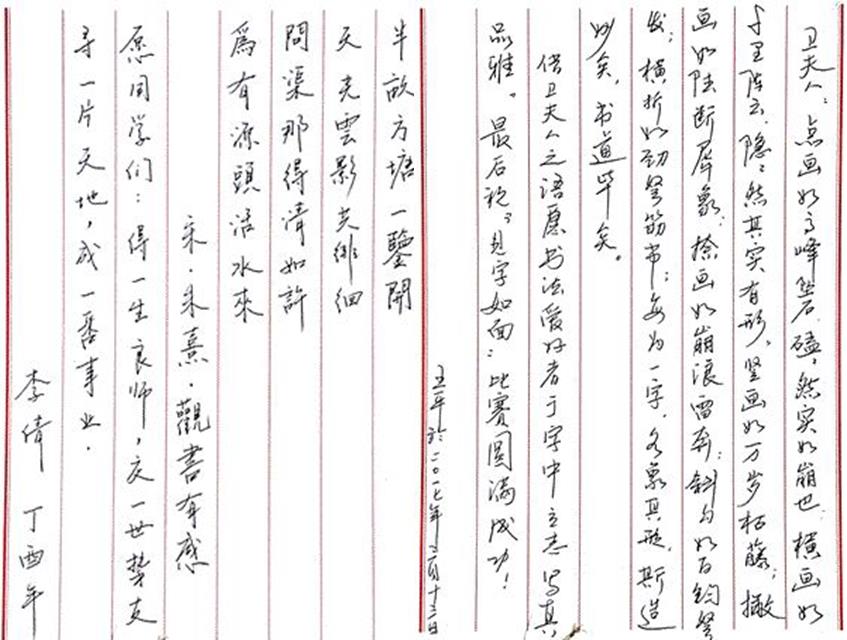 卫夫人：点画如高峰坠石，磕磕然实如崩也；横画如
千里阵云，隐隐然其实有形；竖画如万岁枯藤；撇
画如陆断犀象；捺画如崩浪雷奔；斜勾如百钧弩
发；横折如劲弩筋节；每为一字，各象其形，斯造
妙矣，书道毕矣。
借卫夫人之语愿书法爱好者于字中立志写真
品雅。最后祝：见字如面：比赛圆满成功！
王平於二〇一七年三月十三日
半畝方塘一鑒開
天光雲影共徘徊
問渠那得清如許
爲有源頭活水來
宋·朱熹·觀書有感
愿同学们：得一生良师，交一世挚友
寻一片天地，成一番事业．
李倩 丁酉年